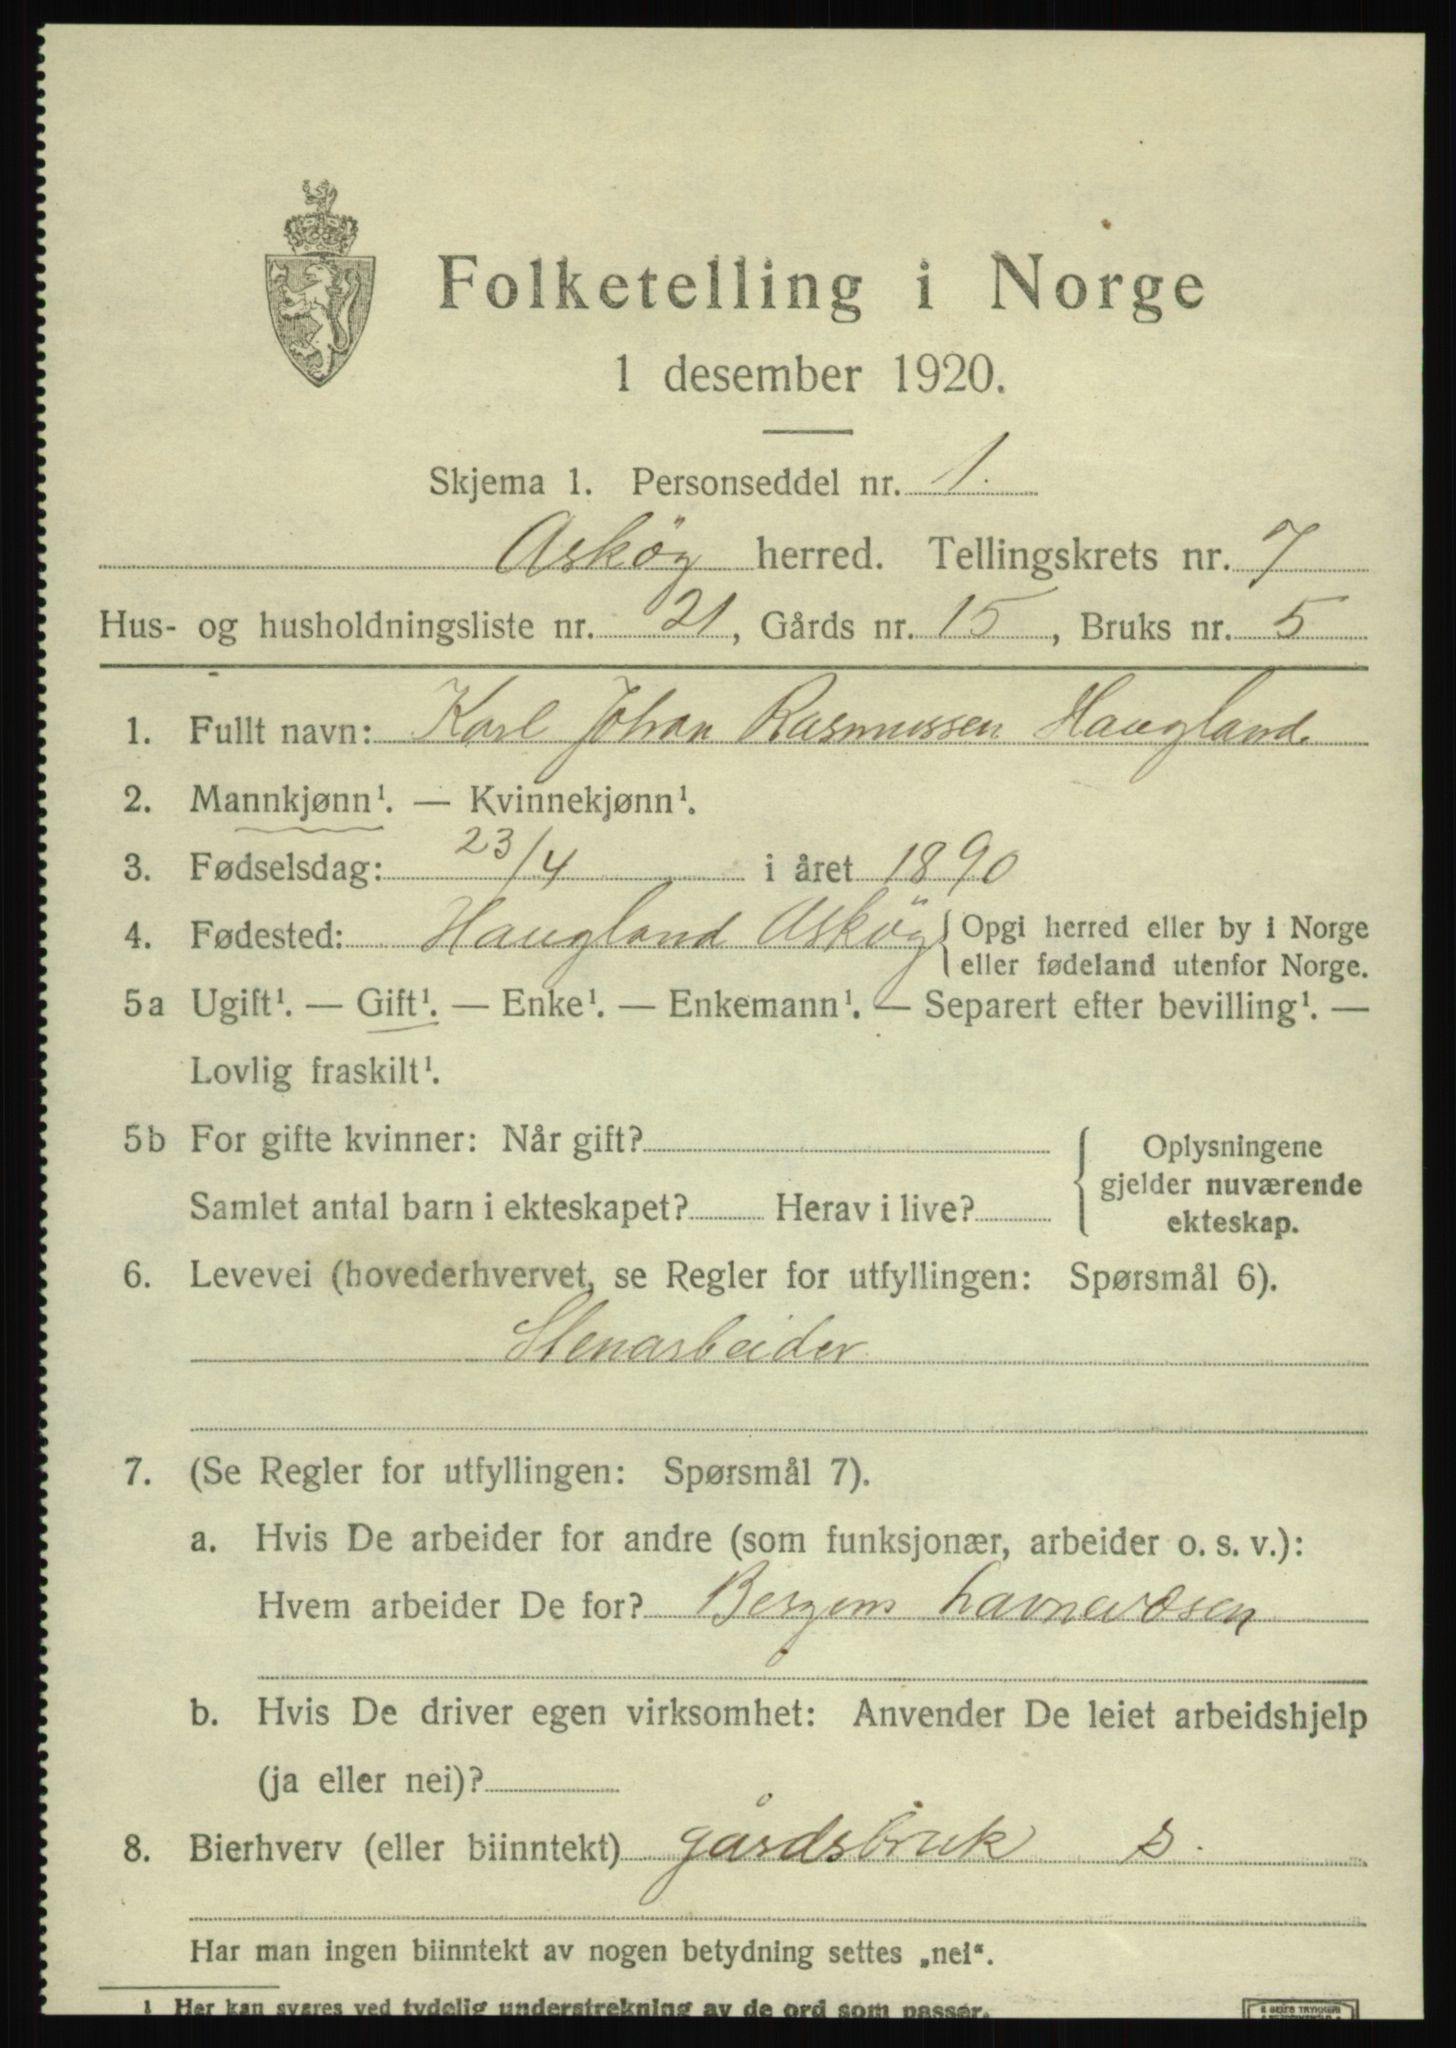 Folketelling i Norge
1 desember 1920.
Skjema 1. Personseddel nr. 1.
Asköy herred. Tellingskrets nr. 7
Hus- og husholdningsliste nr. 21, Gårds nr. 15, Bruks nr. 5
1. Fullt navn: Karl Johan Rasmussen Haugland
2. Mannkjønn¹. — Kvinnekjønn¹.
3. Fødselsdag: 23/4 i året 1890
4. Fødested: Haugland Asköy { Opgi herred eller by i Norge
eller fødeland utenfor Norge.
5a Ugift¹. — Gift¹. — Enke¹. — Enkemann¹. — Separert efter bevilling¹. —
Lovlig fraskilt¹.
5b For gifte kvinner: Når gift?
Samlet antal barn i ekteskapet? Herav i live?
{ Oplysningene
gjelder nuværende
ekteskap.
6. Levevei (hovederhvervet, se Regler for utfyllingen: Spørsmål 6).
Stenarbeider
7. (Se Regler for utfyllingen: Spørsmål 7).
a. Hvis De arbeider for andre (som funksjonær, arbeider o. s. v.):
Hvem arbeider De for? Bergens havnevæsen
b. Hvis De driver egen virksomhet: Anvender De leiet arbeidshjelp
(ja eller nei)?
8. Bierhverv (eller biinntekt) gårdsbruk s.
Har man ingen biinntekt av nogen betydning settes „nei“.
1 Her kan svares ved tydelig understrekning av de ord som passer.